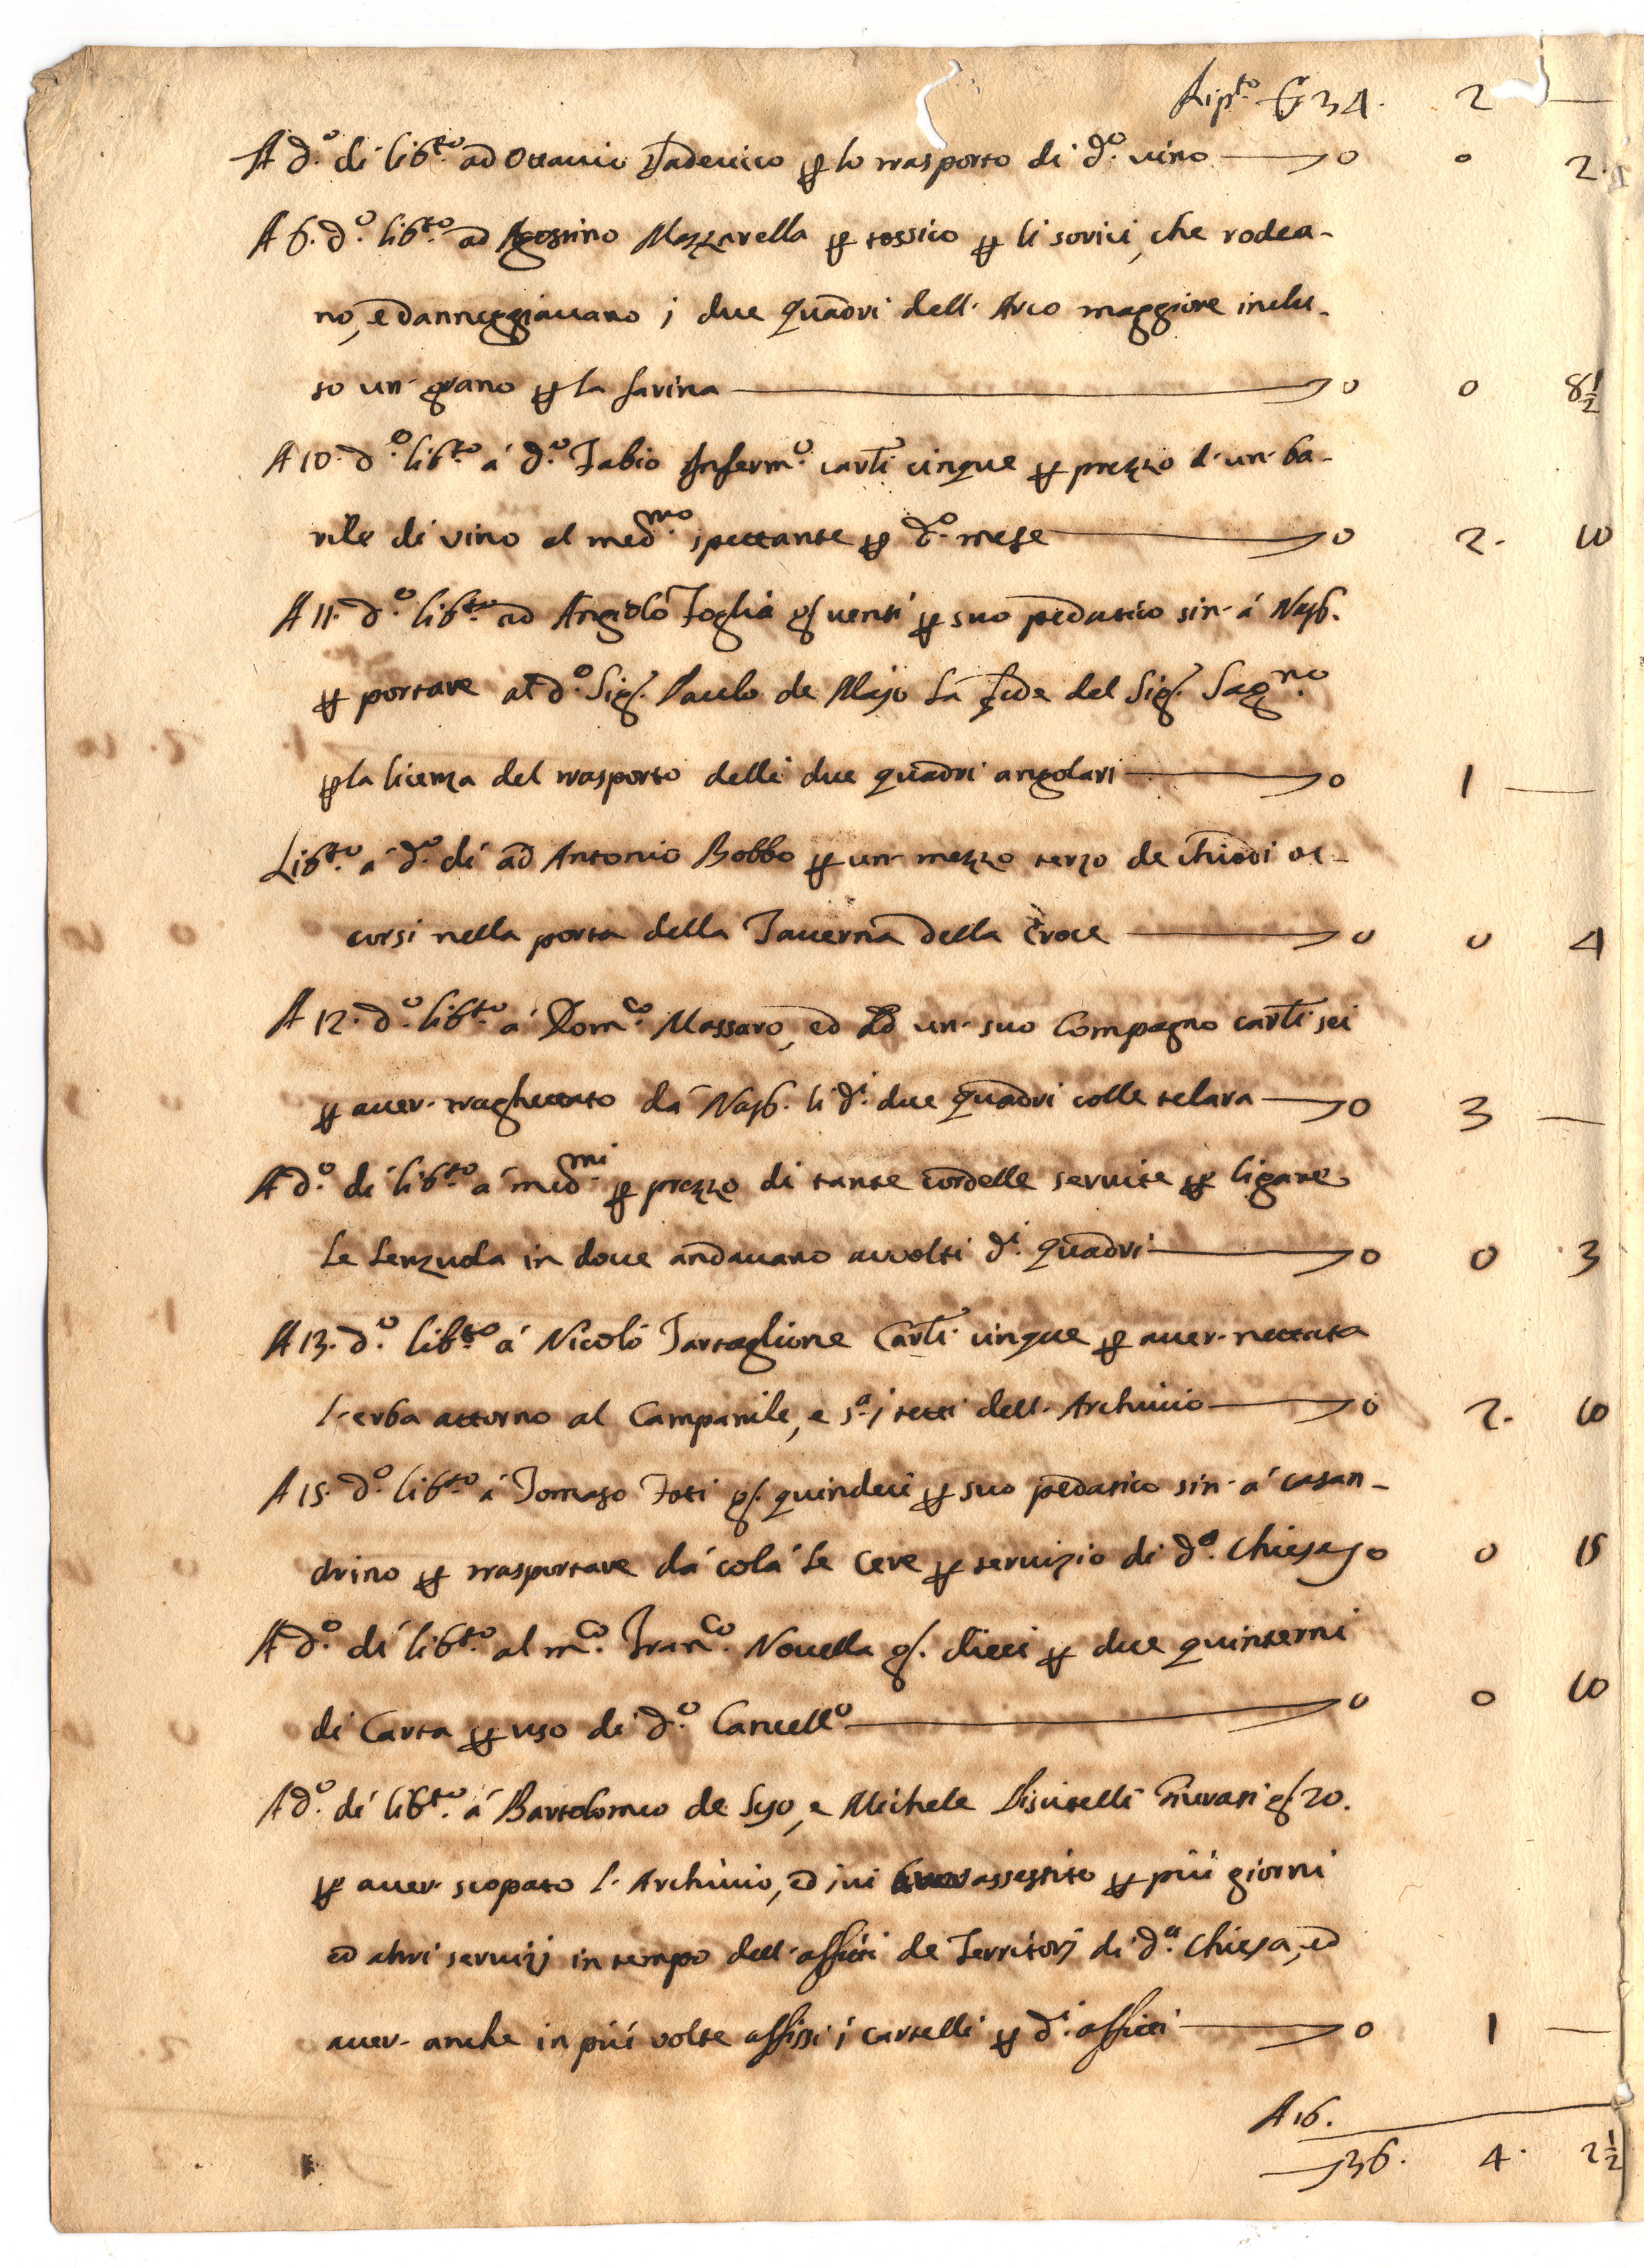 Rip.to D 34. 2 —
A d.o dì lib.to ad Ottavio Iadevico p lo trasporto di d.o vino — 0 0 2.
A 6. d.o lib.to ad Agostino Mazzarella p tossico p li sorici, che rodea-
no, e danneggiavano i due quadri dell' Arco maggiore inclu-
so un' grano p la farina — 0 0 8½
A 10. d.o lib.to à d.o Fabio Inferm.o carlì cinque p prezzo d'un' ba-
rile di vino al med.mo spettante p d.o mese — 0 2. 10
A 11. d.o lib.to ad Angiolo Foglia g. venti p suo pedatico sin' à Nap.
p portare al d.o Sig. Paulo de Majo La fede del Sig. Sag.no
p la licenza del trasporto delli due quadri angolari — 0 1 —
Lib.to à d.o dì ad Antonio Bobbo p un' mezzo terzo de chiodi oc-
corsi nella porta della Taverna della Croce — 0 0 4
A 12. d.o lib.to à Dom.co Massaro, ed ad un' suo Compagno carlì sei
p aver' traghettato dà Nap. li d.i due quadri colle telara — 0 3 —
A d.o dì lib.to à med.mi p prezzo di tante cordelle servite p ligare
Le Lenzuola in dove andavano avvolti d.i quadri — 0 0 3
A 13. d.o lib.to à Nicolò Tartaglione Carlì cinque p aver' nettata
l'erba attorno al Campanile, e s.a i tetti dell' Archivio — 0 2. 10
A 15. d.o lib.to à Tomaso Foti g. quindeci p suo pedatico sin' à casan-
drino p trasportare dà colà Le Cere p servizio di d.a Chiesa 0 0 15
A d.o dì lib.to al m.co Fran.co Novella g. dieci p due quinterni
di Carta p uso di d.o Cancell.o — 0 0 10
A d.o dì lib.to à Bartolomeo de Syo, e Michele Piscitelli g. 20.
p aver' scopato l' Archivio, ed ivi assestito p più giorni
ed altri servizij in tempo dell' affitti de Territorj di d.a Chiesa, ed
aver' anche in più volte affissi i cartelli p d.i affitti — 0 1 —
A 16.
36. 4. 2½